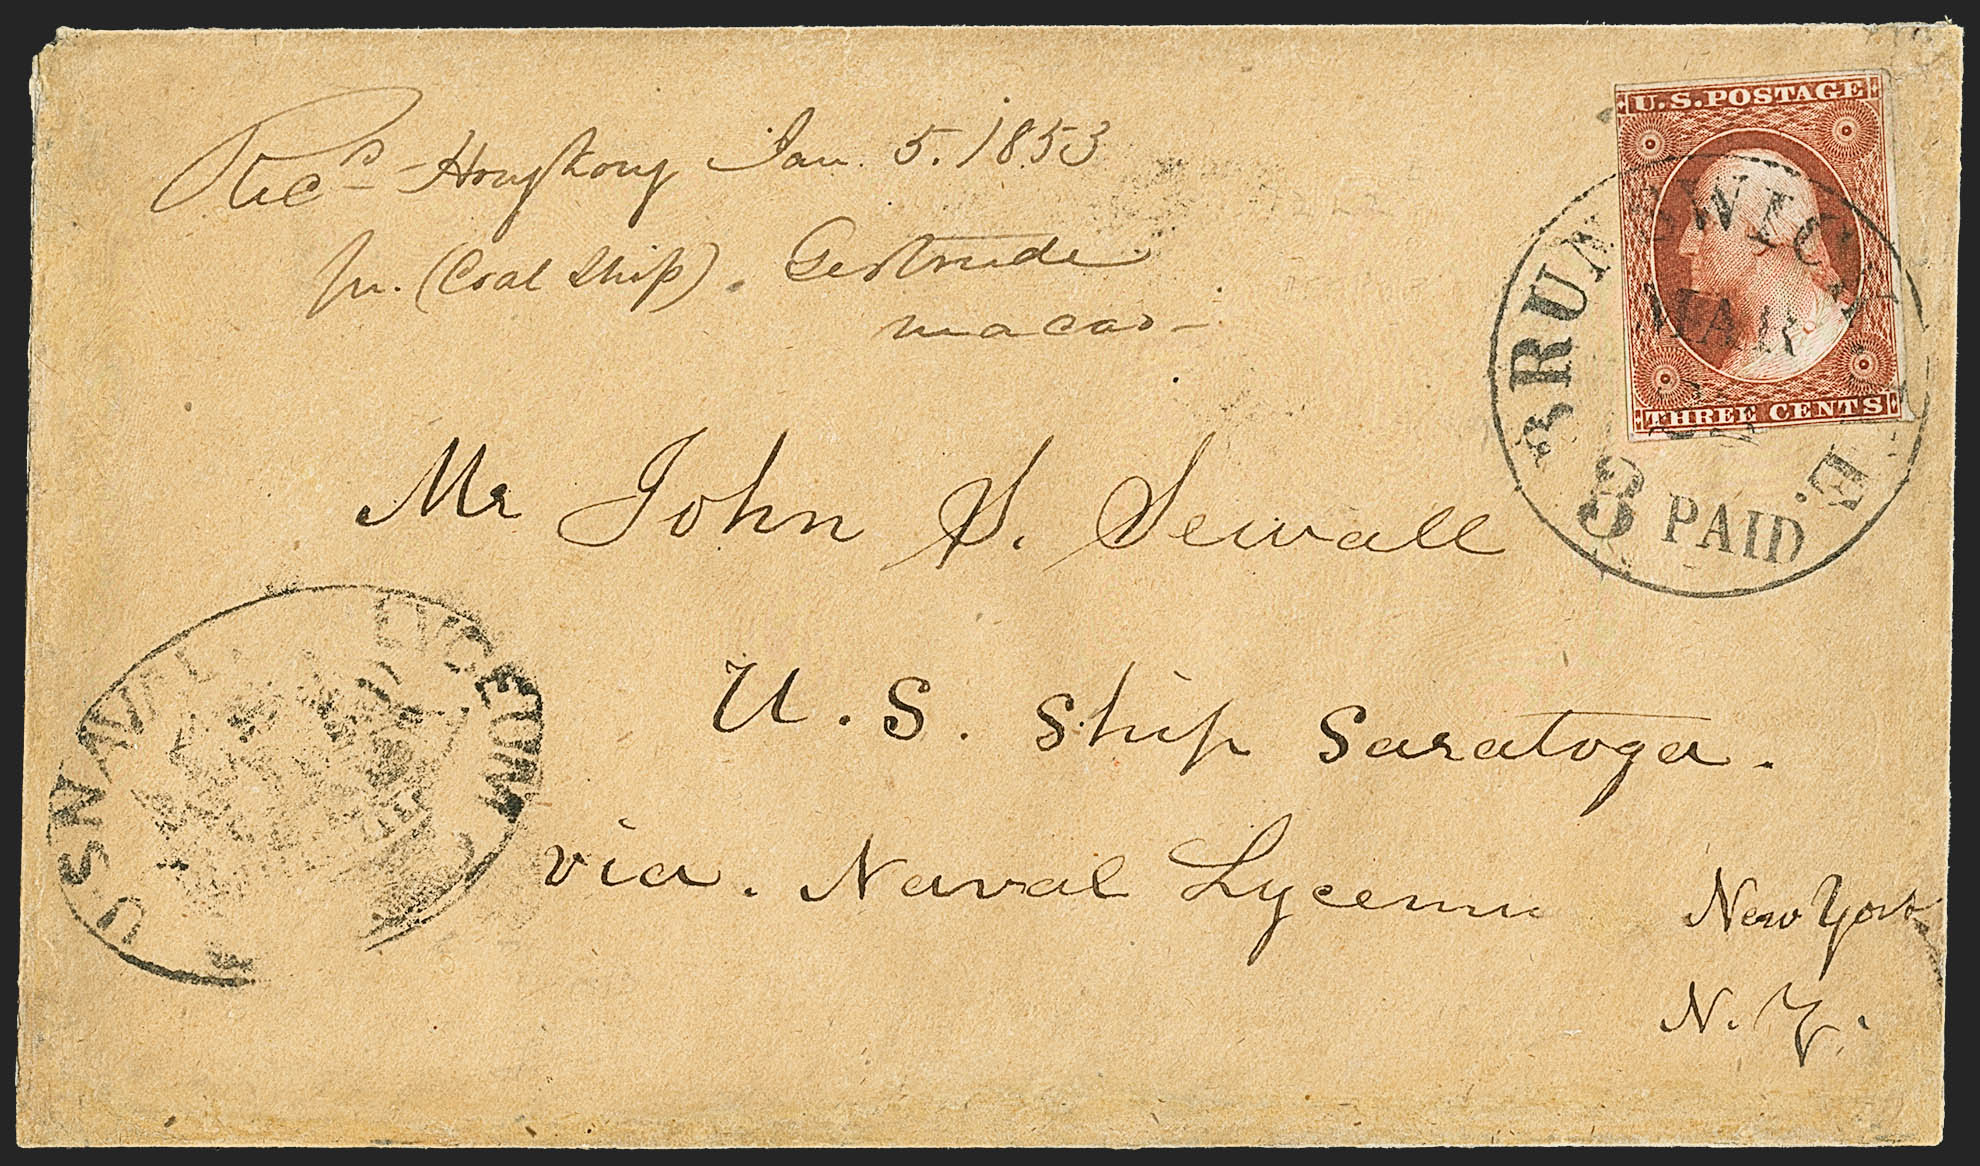 Recd Hongkong Jan. 5. 1853
pr. (Coal Ship). Gertrude
macao
U.S. POSTAGE
THREE CENTS
BRUNSWICK
MAR
ME.
3 PAID
Mr John S. Sewall
U. S. Ship Saratoga.
via. Naval Lyceum New York
N. Y.
U S NAVAL LYCEUM